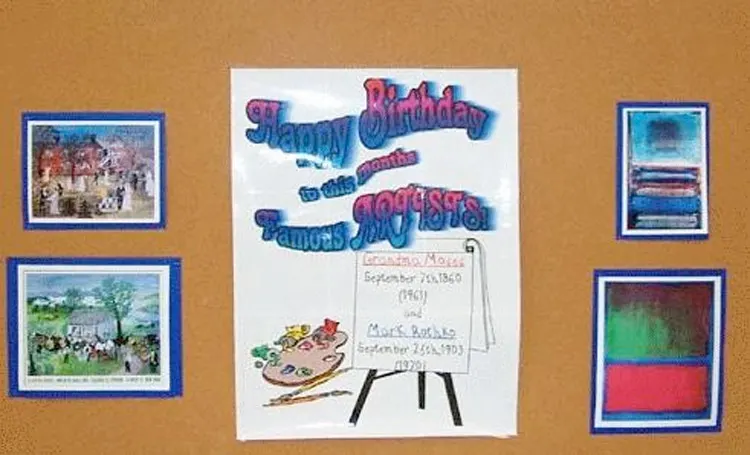 Happy Birthday
to this months
Famous ARTISTS!
Grandma Moses
September 7th, 1860
(1961)
and
Mark Rothko
September 25th, 1903
(1970)